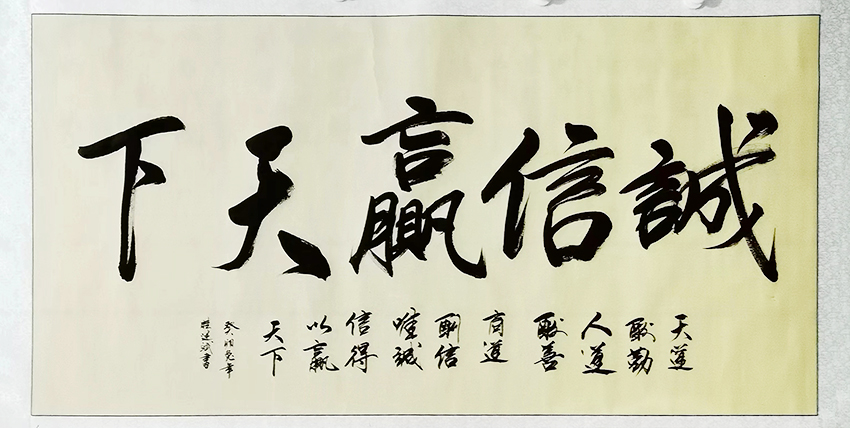 誠信贏天下
天道
酬勤
人道
酬善
商道
酬信
唯誠
信得
以贏
天下
癸卯兔年
書